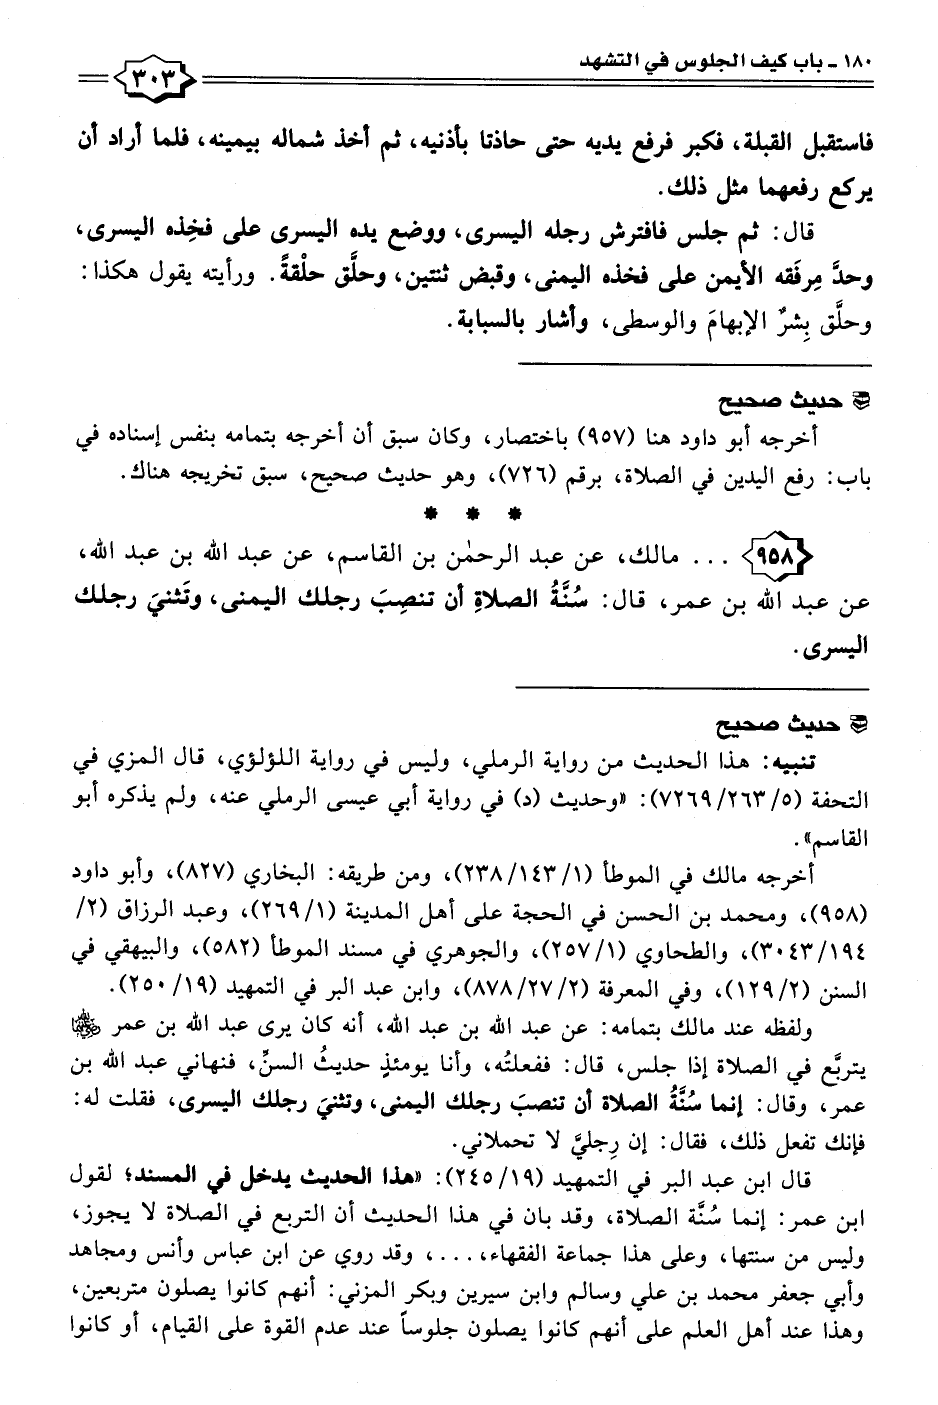 ١٨٠ - باب كيف الجلوس في التشهد
٣٠٣
فاستقبل القبلة، فكبر فرفع يديه حتى حاذتا بأذنيه، ثم أخذ شماله بيمينه، فلما أراد أن
يركع رفعهما مثل ذلك.
قال: ثم جلس فافترش رجله اليسرى، ووضع يده اليسرى على فخِذه اليسرى،
وحدَّ مِرفَقه الأيمن على فخذه اليمنى، وقبض ثنتين، وحلَّق حلْقةً. ورأيته يقول هكذا:
وحلَّق بِشرٌ الإبهامَ والوسطى، وأشار بالسبابة.
حديث صحيح
أخرجه أبو داود هنا (٩٥٧) باختصار، وكان سبق أن أخرجه بتمامه بنفس إسناده في
باب: رفع اليدين في الصلاة، برقم (٧٢٦)، وهو حديث صحيح، سبق تخريجه هناك.
* * *
٩٥٨ ... مالك، عن عبد الرحمٰن بن القاسم، عن عبد الله بن عبد الله،
عن عبد الله بن عمر، قال: سُنَّةُ الصلاةِ أن تنصِبَ رجلك اليمنى، وتَثنيَ رجلك
اليسرى.
حديث صحيح
تنبيه: هذا الحديث من رواية الرملي، وليس في رواية اللؤلؤي، قال المزي في
التحفة (٥/ ٢٦٣/ ٧٢٦٩): «وحديث (د) في رواية أبي عيسى الرملي عنه، ولم يذكره أبو
القاسم».
أخرجه مالك في الموطأ (١/ ١٤٣/ ٢٣٨)، ومن طريقه: البخاري (٨٢٧)، وأبو داود
(٩٥٨)، ومحمد بن الحسن في الحجة على أهل المدينة (١/ ٢٦٩)، وعبد الرزاق (٢/
١٩٤/ ٣٠٤٣)، والطحاوي (١/ ٢٥٧)، والجوهري في مسند الموطأ (٥٨٢)، والبيهقي في
السنن (٢/ ١٢٩)، وفي المعرفة (٢/ ٢٧/ ٨٧٨)، وابن عبد البر في التمهيد (١٩/ ٢٥٠).
ولفظه عند مالك بتمامه: عن عبد الله بن عبد الله، أنه كان يرى عبد الله بن عمر
يتربَّع في الصلاة إذا جلس، قال: ففعلتُه، وأنا يومئذٍ حديثُ السنِّ، فنهاني عبد الله بن
عمر، وقال: إنما سُنَّةُ الصلاة أن تنصبَ رجلك اليمنى، وتثنيَ رجلك اليسرى، فقلت له:
فإنك تفعل ذلك، فقال: إن رِجليَّ لا تحملاني.
قال ابن عبد البر في التمهيد (١٩/ ٢٤٥): «هذا الحديث يدخل في المسند؛ لقول
ابن عمر: إنما سُنَّة الصلاة، وقد بان في هذا الحديث أن التربع في الصلاة لا يجوز،
وليس من سنتها، وعلى هذا جماعة الفقهاء، ...، وقد روي عن ابن عباس وأنس ومجاهد
وأبي جعفر محمد بن علي وسالم وابن سيرين وبكر المزني: أنهم كانوا يصلون متربعين،
وهذا عند أهل العلم على أنهم كانوا يصلون جلوساً عند عدم القوة على القيام، أو كانوا